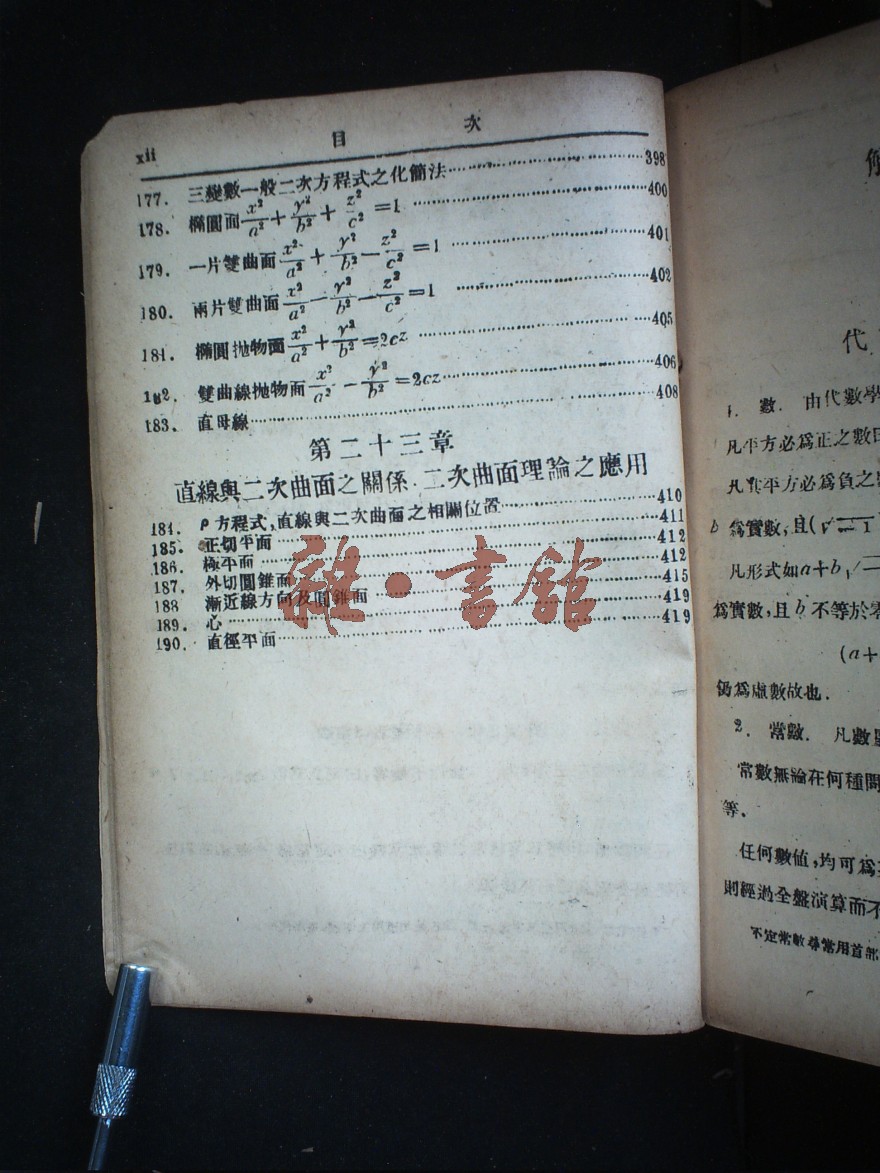 xii 目 次
177. 三變數一般二次方程式之化簡法 398
178. 橢圓面 x²/a² + y²/b² + z²/c² = 1 400
179. 一片雙曲面 x²/a² + y²/b² - z²/c² = 1 401
180. 兩片雙曲面 x²/a² - y²/b² - z²/c² = 1 402
181. 橢圓抛物面 x²/a² + y²/b² = 2cz 405
182. 雙曲線抛物面 x²/a² - y²/b² = 2cz 406
183. 直母線 408
第二十三章
直線與二次曲面之關係．二次曲面理論之應用
184. ρ方程式，直線與二次曲面之相關位置 410
185. 正切平面 411
186. 極平面 412
187. 外切圓錐面 412
188 漸近線方向及圓錐面 415
189. 心 419
190. 直徑平面 419
雜·書館
代
1. 數． 由代數學
凡平方必爲正之數
凡其平方必爲負之
b 爲實數，且(√-1
凡形式如a+b√
爲實數，且 b 不等於零
(a+
仍爲虛數故也．
2. 常數． 凡數
常數無論在何種
等．
任何數値，均可爲
則經過全盤演算而不
不定常數尋常用首部